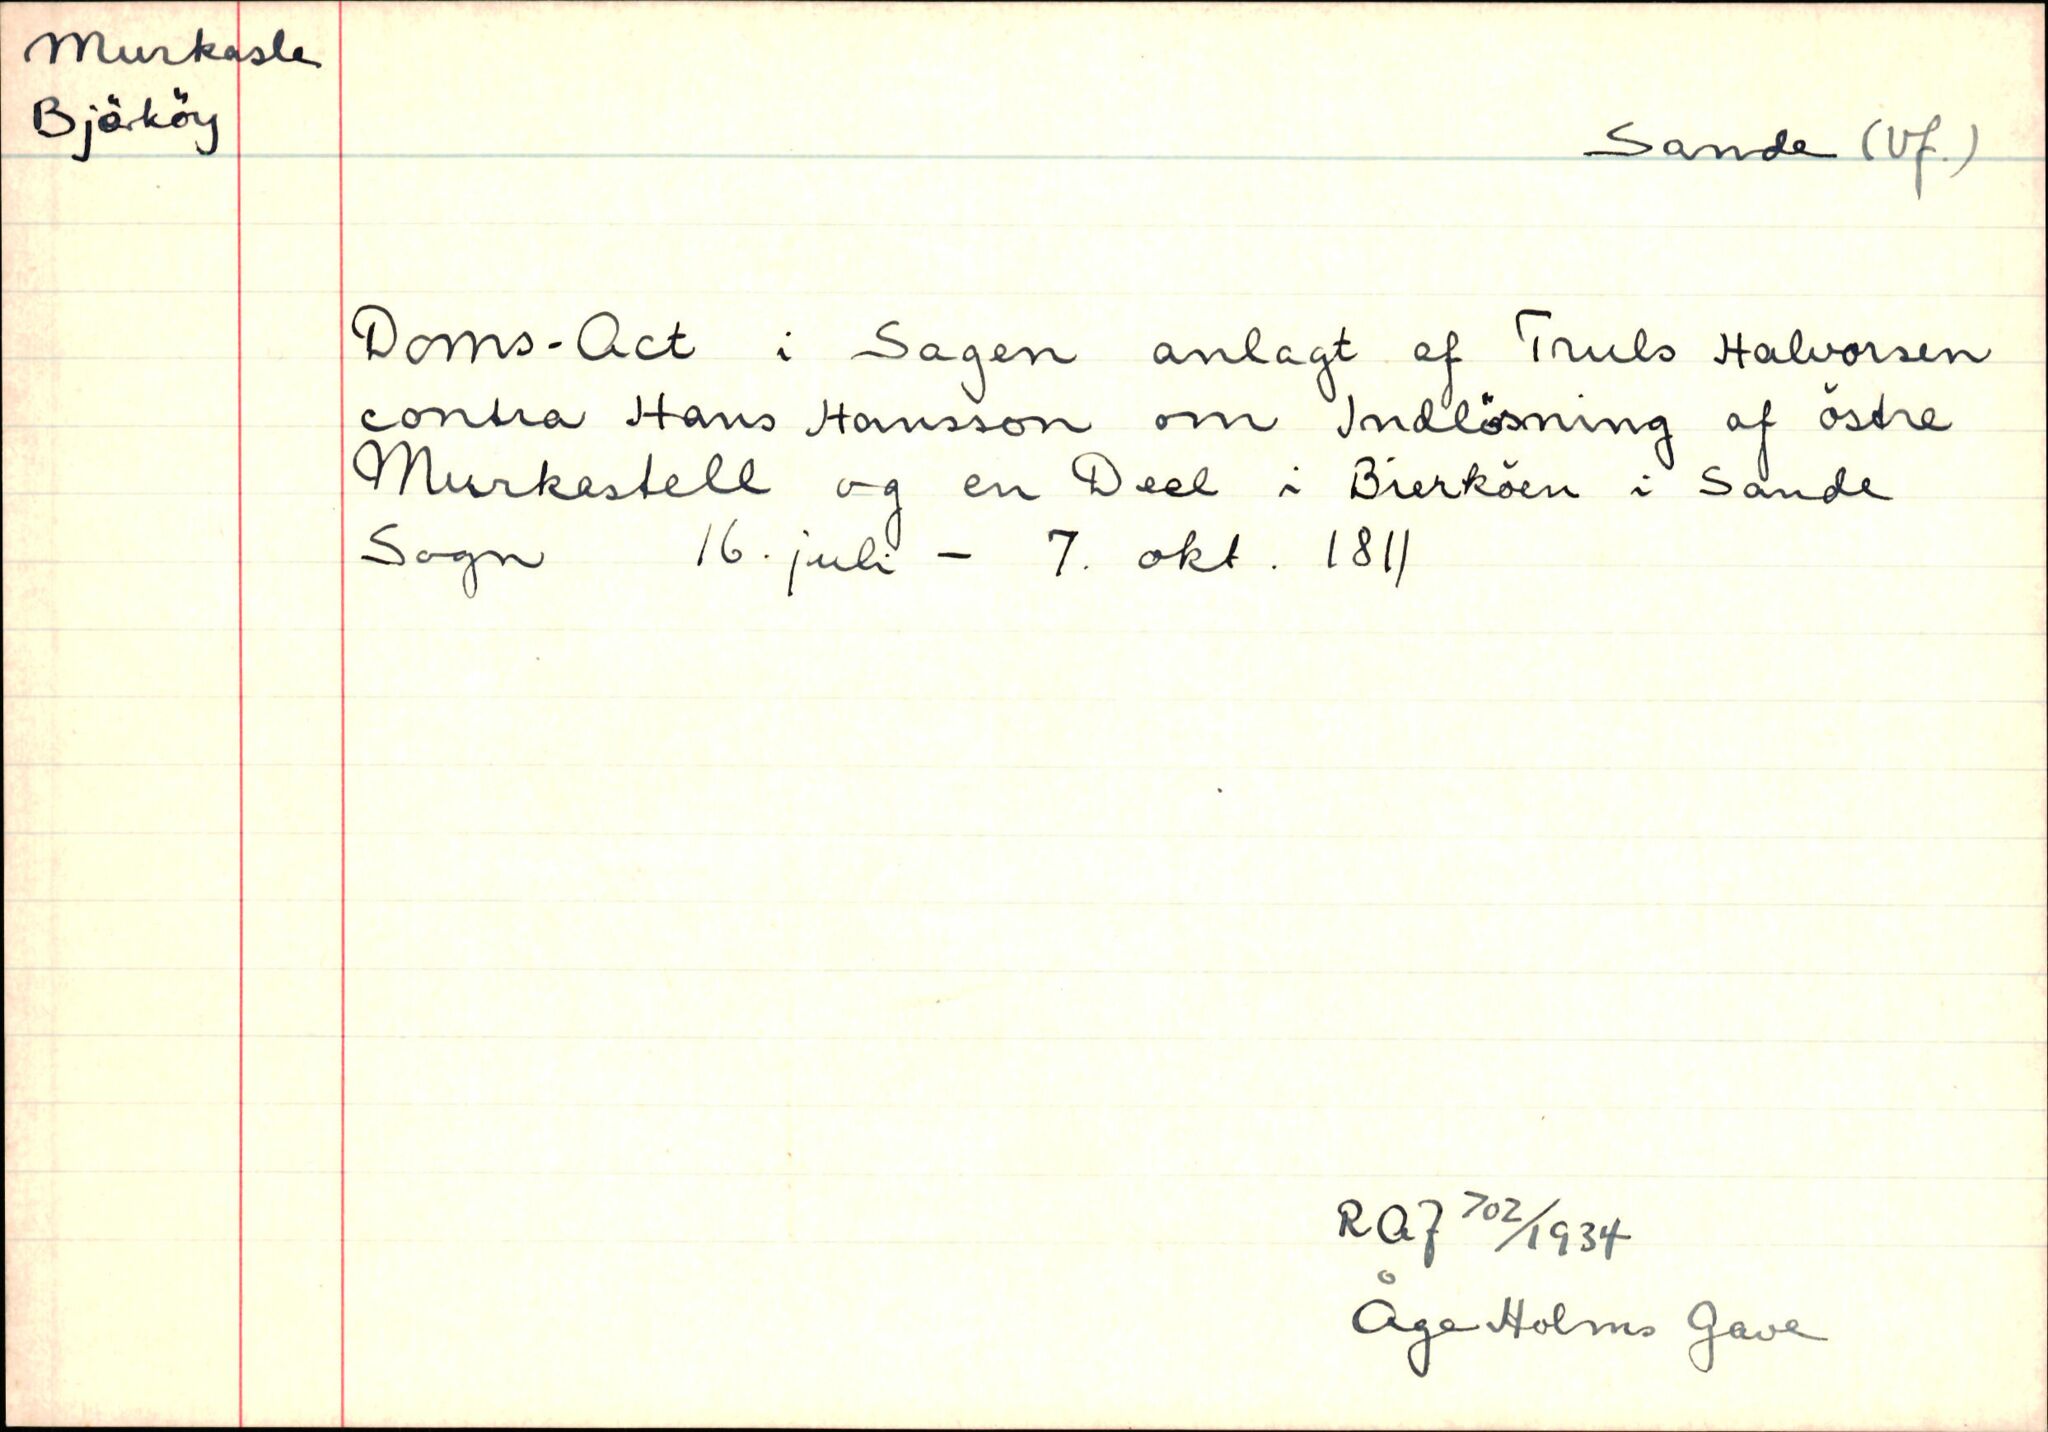 Murkasle
Björköy
Sande (Vf.)
Doms-Act i Sagen anlagt af Truls Halvorsen
contra Hans Hansson om Indlösning af östre
Murkastell og en Deel i Bierköen i Sande
Sogn 16. juli - 7. okt. 1811
RAJ 702/1934
Åge Holms Gave